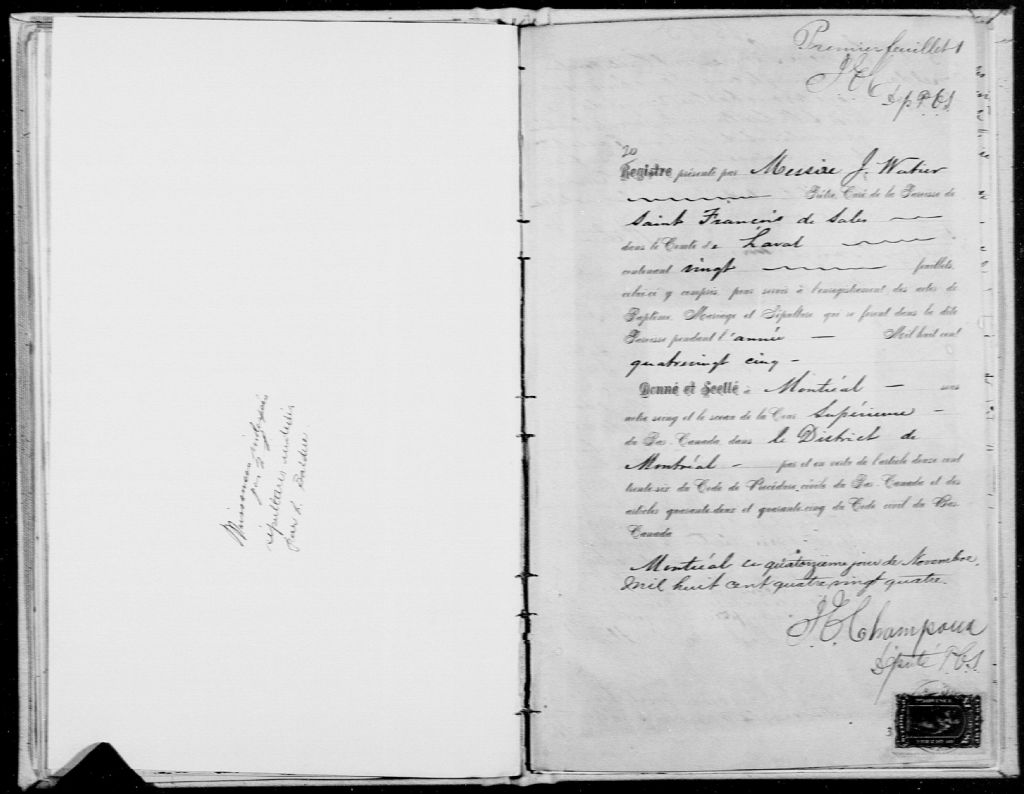 sépultures
par L.
Premier feuillet 1
J.E.C.
Dép P.C.S.
20
Registre présenté par Messire J. Watier
Prêtre, Curé de la Paroisse de
Saint François de Sales
dans le Comté de Laval
contenant vingt feuillets,
celui-ci y compris, pour servir à l'enregistrement des actes de
Baptême, Mariage et Sépulture qui se feront dans la dite
Paroisse pendant l'année — Mil huit cent
quatrevingt cinq -
Donné et Scellé à Montréal — sous
notre seing et le sceau de la Cour Supérieure -
du Bas-Canada, dans le District de
Montréal - par et en vertu de l'article douze cent
trente-six du Code de Procédure civile du Bas-Canada et des
articles quarante-deux et quarante-cinq du Code civil du Bas-
Canada
Montréal ce quatorzième jour de Novembre,
Mil huit cent quatre vingt quatre.
J.E. Champoux
Député P.C.S.
3